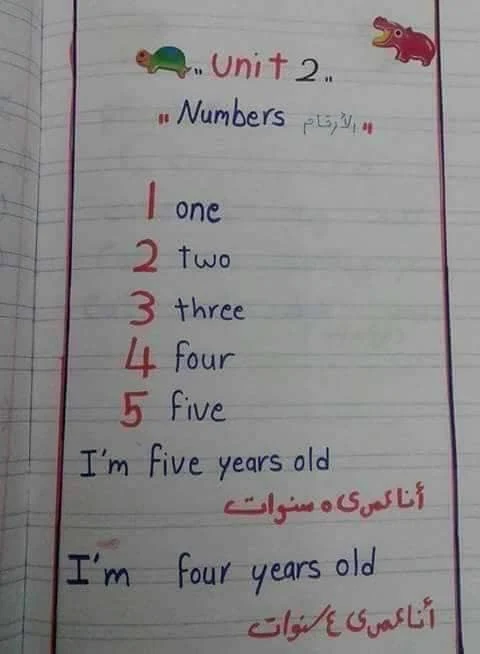 .. Unit 2 ..
" Numbers الأرقام "
1 one
2 two
3 three
4 four
5 five
I'm five years old
أنا عمرى ٥ سنوات
I'm four years old
أنا عمرى ٤ سنوات